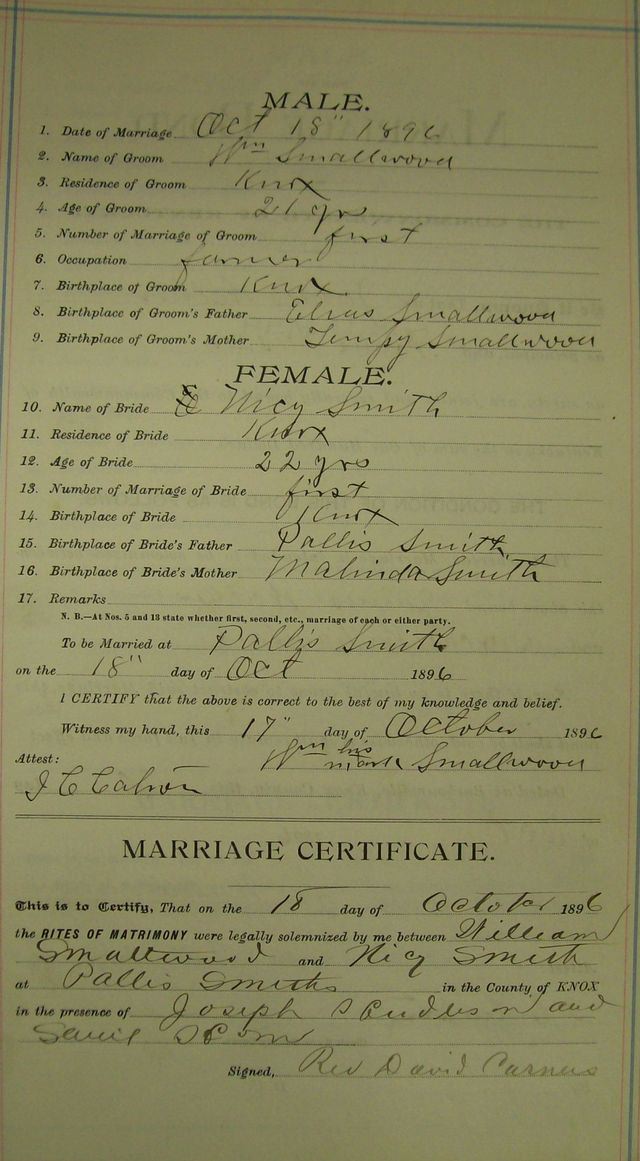 MALE.
1. Date of Marriage Oct 18" 1896
2. Name of Groom Wm Smallwood
3. Residence of Groom Knox
4. Age of Groom 21 yrs
5. Number of Marriage of Groom first
6. Occupation farmer
7. Birthplace of Groom Knox
8. Birthplace of Groom's Father Elias Smallwood
9. Birthplace of Groom's Mother Tempy Smallwood
FEMALE.
10. Name of Bride Nicy Smith
11. Residence of Bride Knox
12. Age of Bride 22 yrs
13. Number of Marriage of Bride first
14. Birthplace of Bride Knox
15. Birthplace of Bride's Father Pallis Smith
16. Birthplace of Bride's Mother Malinda Smith
17. Remarks
N. B.—At Nos. 5 and 13 state whether first, second, etc., marriage of each or either party.
To be Married at Pallis Smith
on the 18" day of Oct 1896
I CERTIFY that the above is correct to the best of my knowledge and belief.
Witness my hand, this 17" day of October 1896
Attest: Wm his mark Smallwood
J C
MARRIAGE CERTIFICATE.
This is to Certify, That on the 18 day of October 1896
the RITES OF MATRIMONY were legally solemnized by me between William
Smallwood and Nicy Smith
at Pallis Smiths in the County of KNOX
in the presence of Joseph and
Signed, Rev David